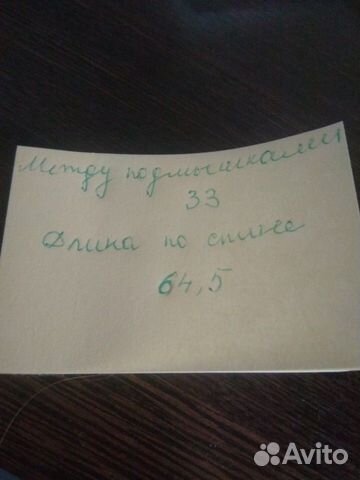 Между подмышками
33
Длина по спине
64,5
Avito